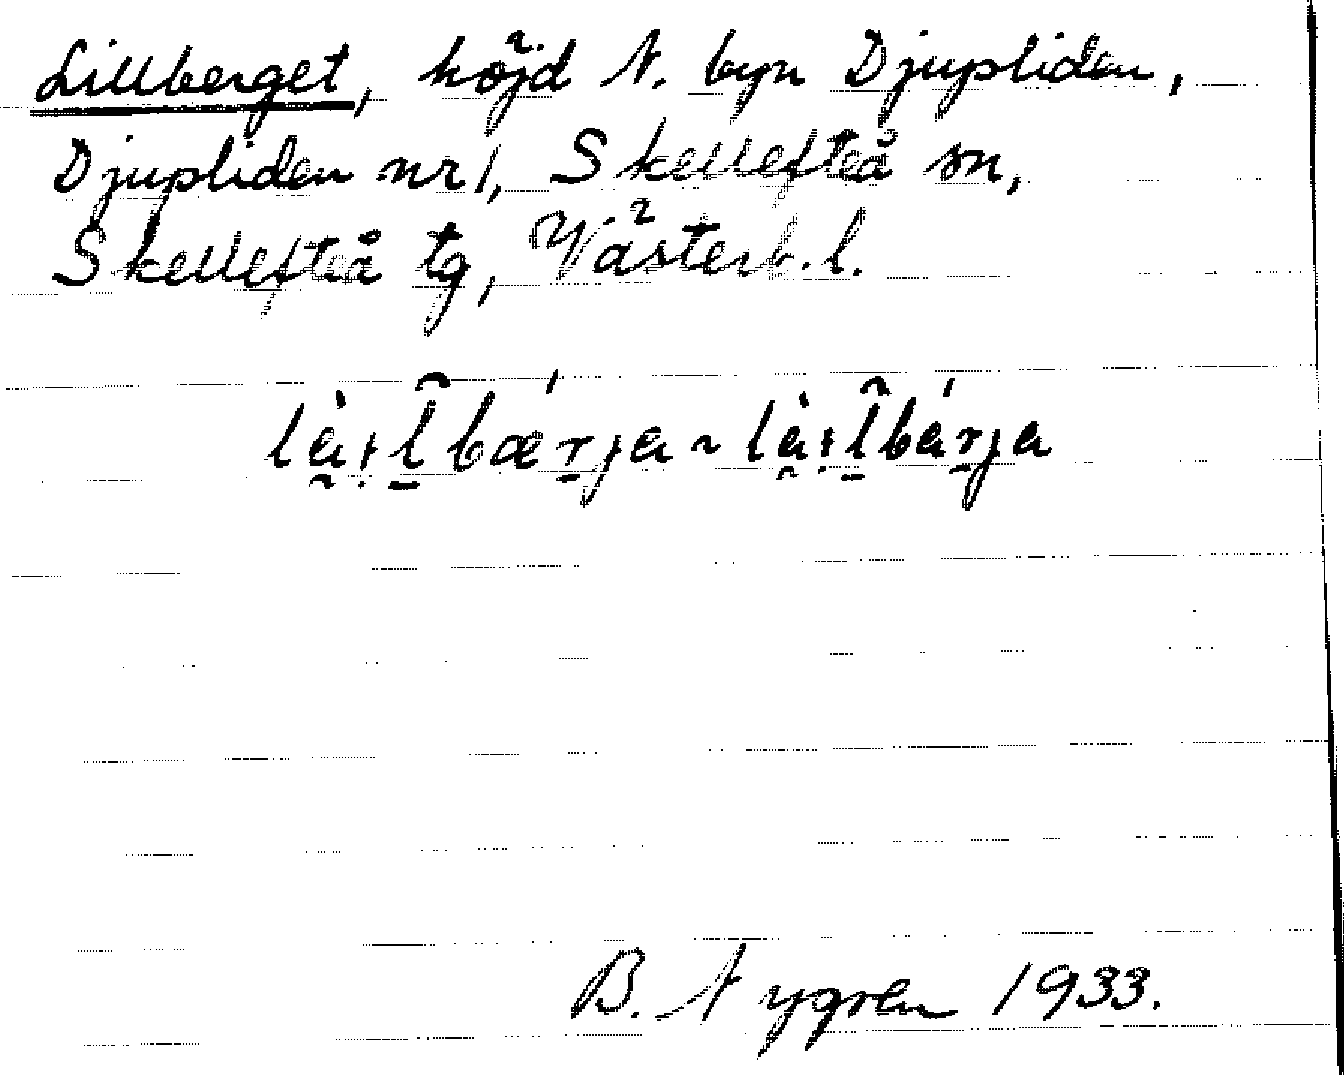 Lillberget, höjd N. byn Djupliden,
Djupliden nr 1, Skellefteå sn,
Skellefteå tg, Västerb. l.
B. Nygren 1933.